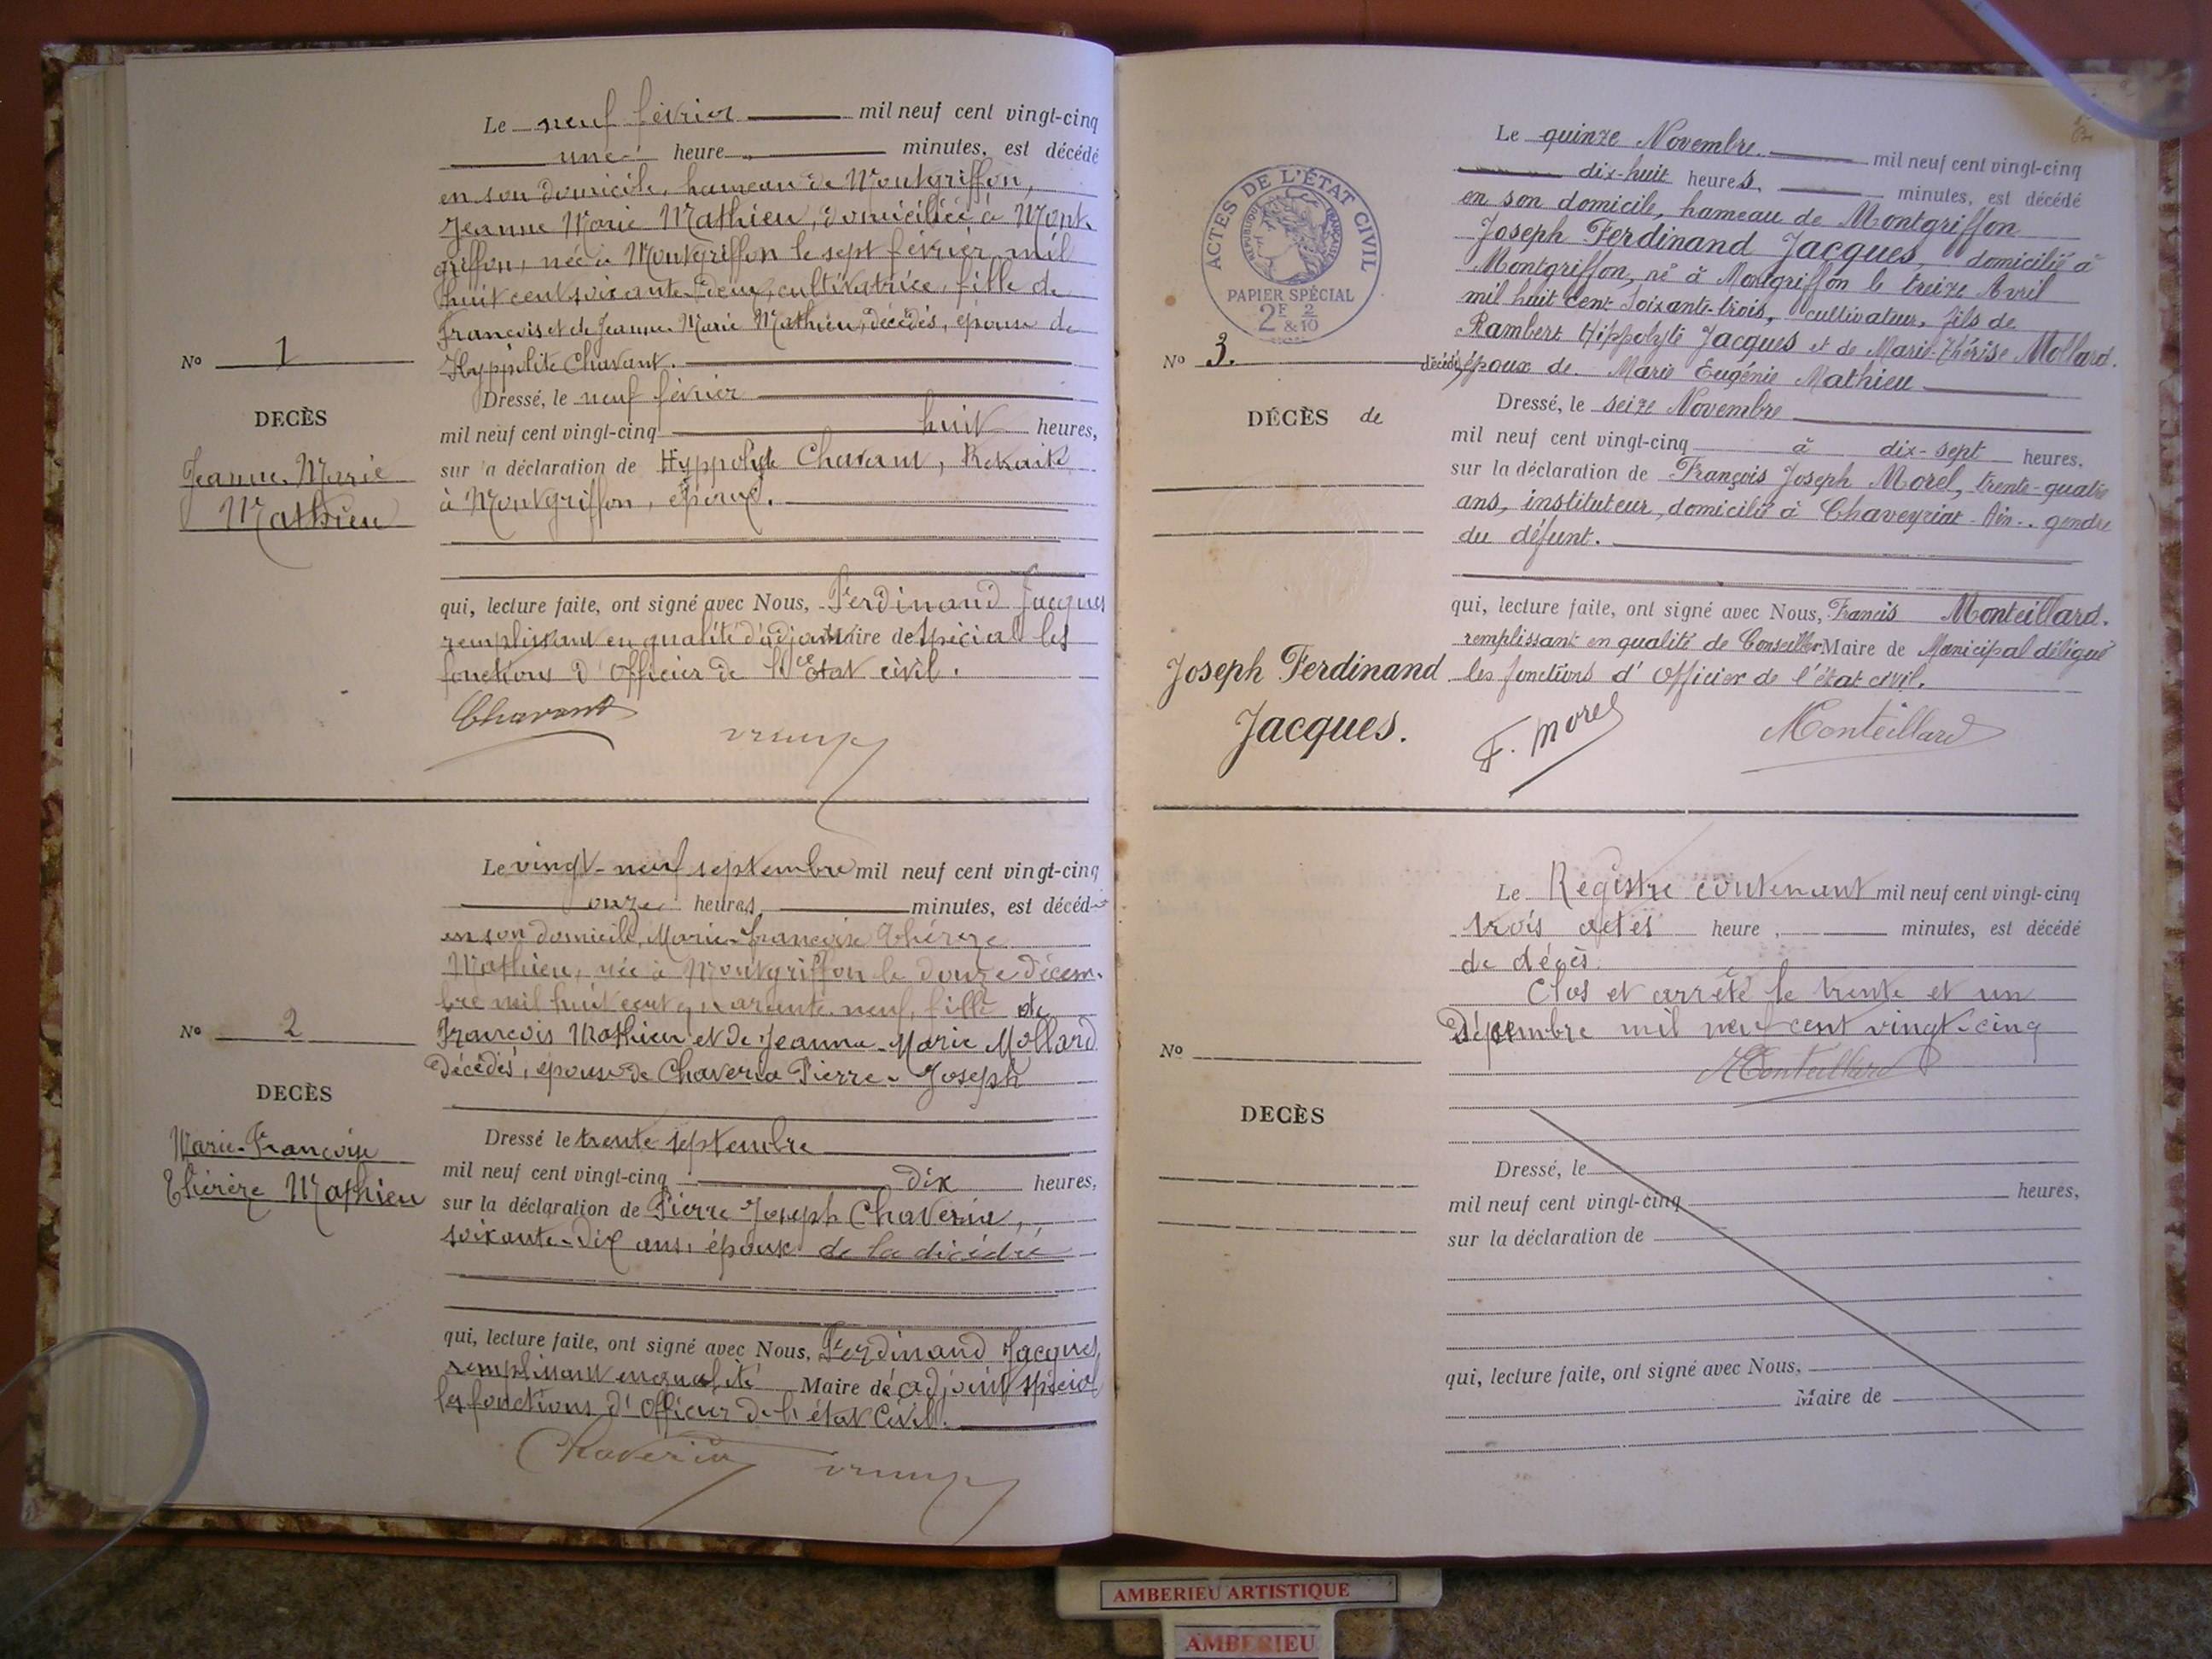 Le neuf février mil neuf cent vingt-cinq
une heure minutes, est décédé
en son domicile, hameau de Montgriffon,
Jeanne Marie Mathieu, domiciliée à Mont-
griffon, née à Montgriffon le sept février mil
huit cent soixante-deux, cultivatrice, fille de
François et de Jeanne-Marie Mathieu, décédés, épouse de
Hyppolite Chavant.
No 1
DECÈS
Jeanne-Marie
Mathieu
Dressé, le neuf février
mil neuf cent vingt-cinq huit heures,
sur la déclaration de Hyppolyte Chavant, Retraité
à Montgriffon, époux.
qui, lecture faite, ont signé avec Nous, Ferdinand Jacques
remplissant en qualité d'adjoint Maire de spécial les
fonctions d'Officier de l'Etat civil.
Chavant
Le vingt-neuf septembre mil neuf cent vingt-cinq
onze heures minutes, est décédé
en son domicile, Marie-Françoise Thérèze
Mathieu, née à Montgriffon le douze décem-
bre mil huit cent quarante-neuf, fille de
François Mathieu et de Jeanne-Marie Mollard
décédés, épouse de Chaveria Pierre-Joseph
No 2
DECÈS
Marie-Françoise
Thérèze Mathieu
Dressé le trente septembre
mil neuf cent vingt-cinq dix heures,
sur la déclaration de Pierre-Joseph Chaveria,
soixante-dix ans, époux de la décédée
qui, lecture faite, ont signé avec Nous, Ferdinand Jacques
remplissant en qualité Maire de adjoint spécial
les fonctions d'Officier de l'état Civil.
Chaveria
ACTES DE L'ÉTAT CIVIL
RÉPUBLIQUE FRANÇAISE
PAPIER SPÉCIAL
2F 2
& 10
Le quinze Novembre mil neuf cent vingt-cinq
dix-huit heures, minutes, est décédé
en son domicile, hameau de Montgriffon
Joseph Ferdinand Jacques, domicilié à
Montgriffon, né à Montgriffon le treize Avril
mil huit cent soixante-trois, cultivateur, fils de
Rambert Hippolyte Jacques et de Marie-Thérèse Mollard.
décédés, époux de Marie Eugénie Mathieu
No 3.
DÉCÈS de
Joseph Ferdinand
Jacques.
Dressé, le seize Novembre
mil neuf cent vingt-cinq à dix-sept heures,
sur la déclaration de François Joseph Morel, trente-quatre
ans, instituteur, domicilié à Chaveyriat - Ain -. gendre
du défunt.
qui, lecture faite, ont signé avec Nous, Francis Monteillard.
remplissant en qualité de Conseiller Maire de Municipal délégué
les fonctions d'Officier de l'état civil.
F. Morel
Monteillard
Le Registre contenant mil neuf cent vingt-cinq
trois actes heure, minutes, est décédé
de décès.
Clos et arrêté le trente et un
décembre mil neuf cent vingt-cinq
Monteillard
No
DECÈS
Dressé, le
mil neuf cent vingt-cinq heures,
sur la déclaration de
qui, lecture faite, ont signé avec Nous,
Maire de
AMBERIEU ARTISTIQUE
AMBERIEU